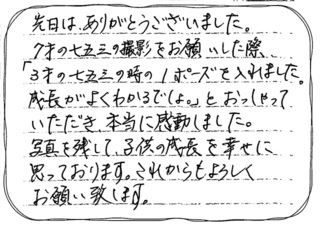 先日は、ありがとうございました。
7才の七五三の撮影をお願いした際
「3才の七五三の時の1ポーズを入れました。
成長がよくわかるでしょ。」と おっしゃって
いただき、本当に感動しました。
写真を残して、子供の成長を幸せに
思っております。これからもよろしく
お願い致します。